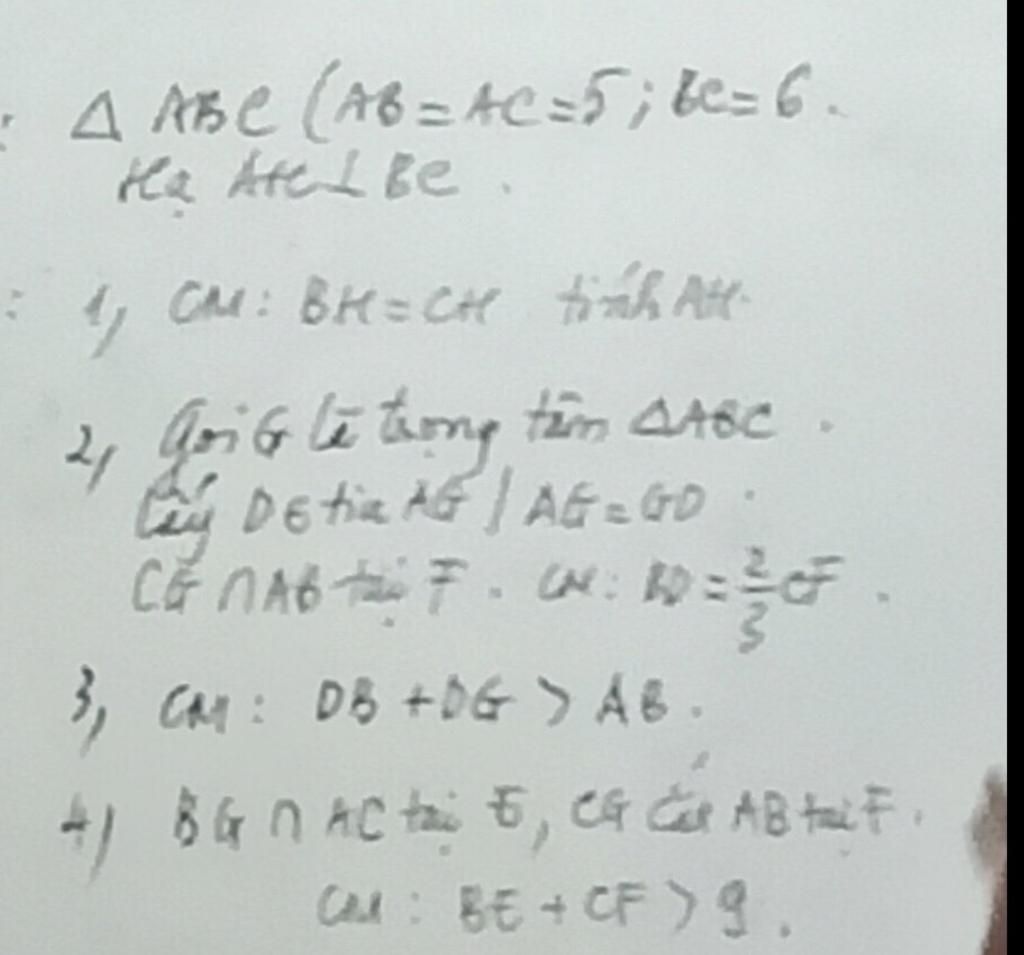 : Δ ABC (AB = AC = 5 ; BC = 6 .
Hạ AH ⊥ BC .
: 1, CM : BH = CH tính AH .
2, Gọi G là trọng tâm ΔABC .
Lấy D ∈ tia AG / AG = GD .
CG ∩ AB tại F . CM : BD = 2/3 CF .
3, CM : DB + DG > AB .
4) BG ∩ AC tại E , CG cắt AB tại F .
CM : BE + CF > 9 .